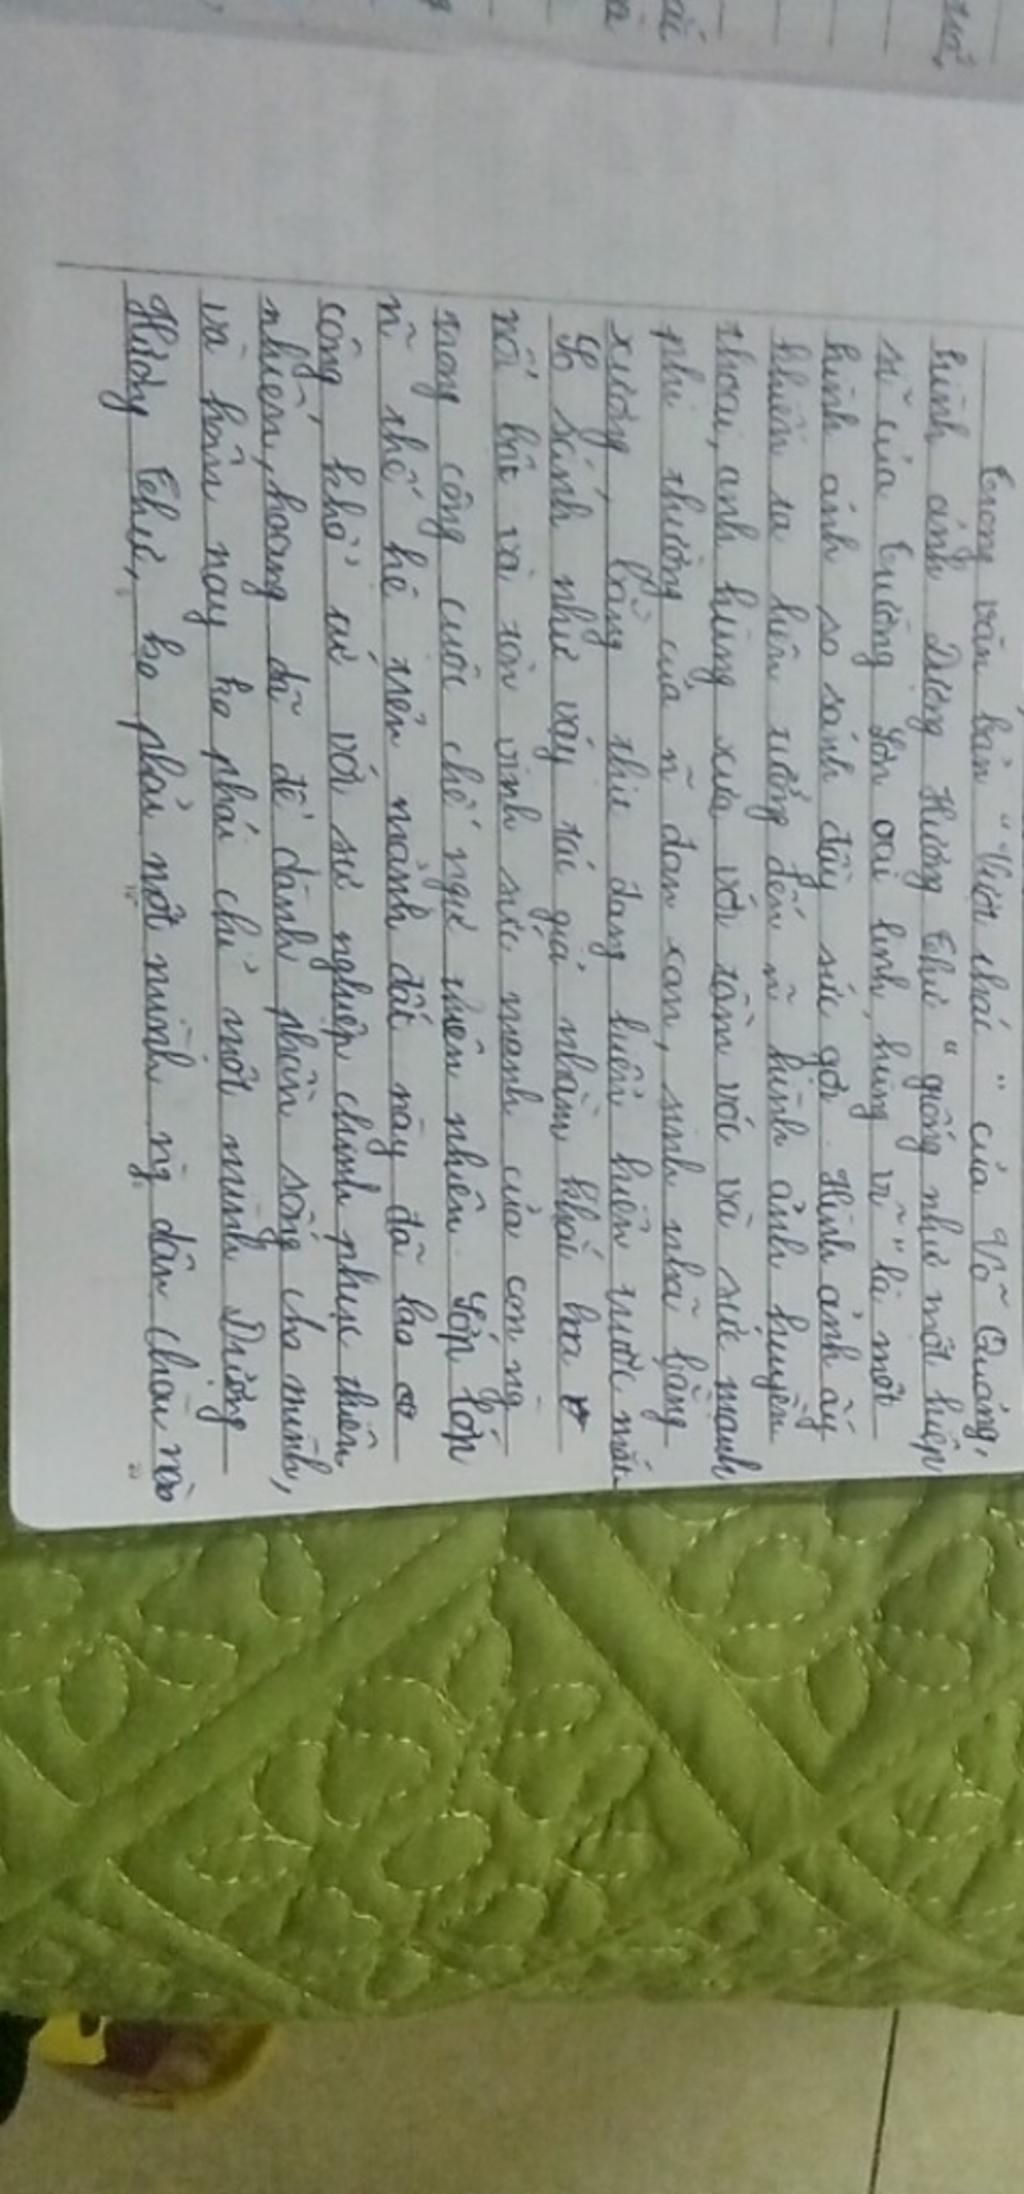 Trong văn bản "Vượt thác" của Võ Quảng,
hình ảnh Dượng Hương Thư "giống như một hiệp
sĩ của Trường Sơn oai linh, hùng vĩ" là một
hình ảnh so sánh đầy sức gợi. Hình ảnh ấy
khiến ta liên tưởng đến n~ hình ảnh huyền
thoại, anh hùng xưa với tầm vóc và sức mạnh
phi thường của n~ đam xan, sinh nhã bằng
xương, bằng thịt đang hiển hiện trước mắt.
So sánh như vậy tác giả nhằm khắc hoạ
nổi bật và tôn vinh sức mạnh của con ng
trong công cuộc chế ngự thiên nhiên. Lớp lớp
n~ thế hệ trên mảnh đất này đã lao
công, khổ cứ với sự nghiệp chinh phục thiên
nhiên, hoang dã để dành phần sống cho mình,
và hôm nay họ phải chỉ một mình Dượng
Hương Thư, họ phải một mình ng dân chài nào